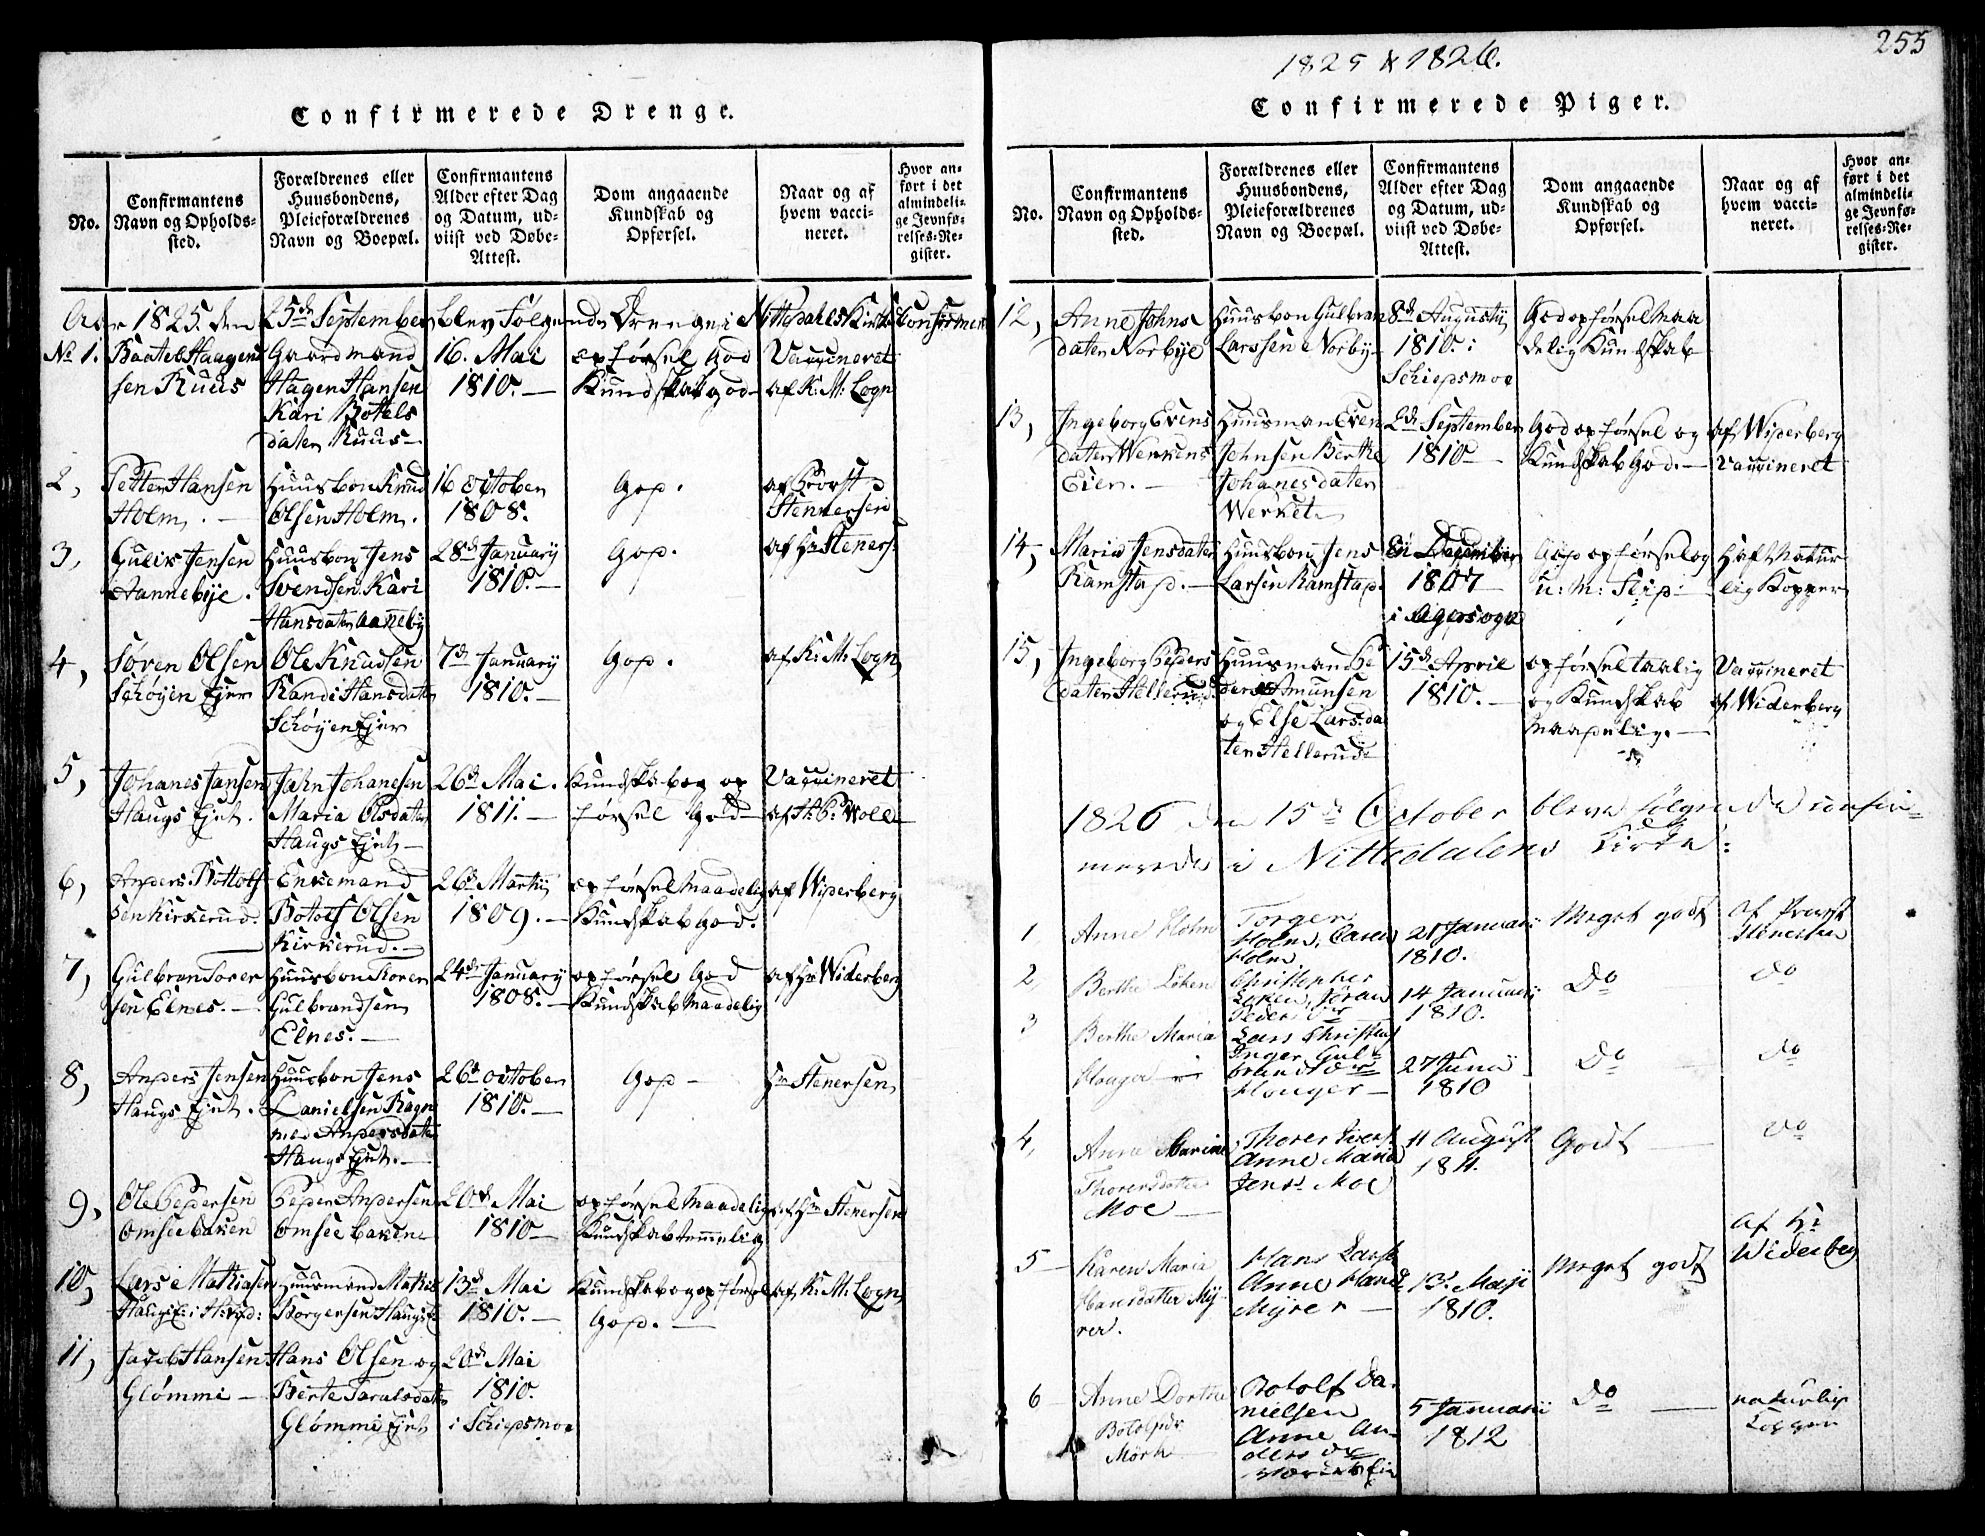 255
1825 & 1826.
Confirmerede Drenge.
No.
Confirmantens
Navn og Opholds-
sted.
Forældrenes eller
Huusbondens,
Pleieforældrenes
Navn og Boepæl.
Confirmantens
Alder efter Dag
og Datum, ud-
viist ved Døbe-
Attest.
Dom angaaende
Kundskab og
Opførsel.
Naar og af
hvem vacci-
neret.
Hvor an-
ført i det
almindeli-
ge Jevnfø-
relses-Re-
gister.
Aar 1825 den 25de September blev følgende Drenge i Nittedahls Kirke
No 1.
Gaardmand
Hagen Hansen
Kari Botels
daten Ruus
16. Mai
1810.
opførsel God
Kundskab god
Vaccineret
af K: M: Logn
sen Ruus
2,
Petter Hansen
Holm.
Huusbon Knud
Olsen Holm.
16 October
1808.
God.
af Provst
Stenersen
3,
Gulik Jensen
Aannebye.
Huusbon Jens
Svendsen Kari
Hansdaten Aaneby
28de January
1810.
God.
af Hr Steners:
4,
Søren Olsen
Schøyen Ejer
Ole Knudsen
Randi Hansdaten
Schøyen Ejer
7de January
1810.
God.
af K: M: Logn
5,
Johanes Jansen
Haugs Ejet.
Jahn Johanesen
Maria Olsdaten
Haugs Ejet
26de Mai.
1811.
Kundskab og op
førsel God
Vaccineret
6,
Anders Bottolf
sen Kirkerud.
Enkemand
Botolf Olsen
Kirkerud.
26de Martij
1809.
opførsel Maadelig
Kundskab God.
af Widerberg
7,
Gulbran Torer
sen Elnes.
Huusbon Torer
Gulbrandsen
Elnes.
24de January
1808.
opførsel God
Kundskab Maadelig
af Hr Widerberg
8,
Anders Jensen
Haugs Ejet.
Huusbon Jens
Danielsen Ragn
Andersdaten
Haugs Ejet.
26de October
1810.
God
Hr Stenersen
9,
Ole Pedersen
Omseebaken
Peder Andersen
Omseebakene
20de Mai
1810
opførsel Maadelig
Kundskab temmelig
af Hr Stenersen
10,
Lars Mathiasen
Huusmand Mathis
Borgersen Haugs
13de Mai
1810.
Kundskab og opførsel
God.
af K: M. Logn
11,
Jacob Hansen
Glømmi
Hans Olsen og
Berte Taralsdaten
Glømmi Ejet
20de Mai
1810.
i Schiedsmoe
Confirmerede Piger.
No.
Confirmantens
Navn og Opholds-
sted.
Forældrenes eller
Huusbondens,
Pleieforældrenes
Navn og Boepæl.
Confirmantens
Alder efter Dag
og Datum, ud-
viist ved Døbe-
Attest.
Dom angaaende
Kundskab og
Opførsel.
Naar og af
hvem vacci-
neret.
Hvor an-
ført i det
almindeli-
ge Jevnfø-
relses-Re-
gister.
12,
Anne Johns
daten Norbye
Huusbon Gulbran
Larssen Norby
8de Augustij
1810. i
Schiedsmoe
God opførsel Maa
delig Kundskab
13,
Ingeborg Evens
daten Werkens
Eier.
Huusman Even
Johnsen Berthe
Johanesdaten
Werket
2de September
1810
God opførsel og
Kundskab God.
af Widerberg
Vaccineret
14,
Maria Jensdater
Ramstad.
Huusbon Jens
Larsen Ramstad.
December
1807
i Agersogn
God opførsel og
u: M: Flid
Haft Natur
lig Kopper
15,
Ingeborg Peders
daten Hellerud
Huusman Pe
der Amunsen
og Else Larsda
ten Hellerud
15de April
1810.
opførsel taalig
og Kundskab
Maadelig.
Vaccineret
af Widerberg
1826 den 15de October bleve følgende confir-
merede i Nittedalens Kirke:
1
Anne Holm
Torger
Holm, Caren
Holm
21 Januari
1810.
Meget godt
af Provst
Stenersen
2
Berthe Løken
Christopher
Løken, Joran
14 Januarij
1810.
Do
do
3
Berthe Maria
Houger
Lars Christens
Inger Gul-
brandsdr
Houger
27 Juni
1810
Do
do
4,
Anne Marine
Thorersdatter
Moe
Thorer Ivers.
Anne Maria
Jensd. Moe
11 August
1811.
Godt
do
5
Karen Maria
Hansdatter My-
rer.
Hans Larsen
Anne Hansd
Myrer
13. Maji
1810.
Meget godt
af Hr
Widerberg
6
Anne Dorthe
Botolfsdr
Mørk
Botolf Da-
nielsen
Anne An-
ders dr
5 Januarii
1812
Do
naturlig
Kopper